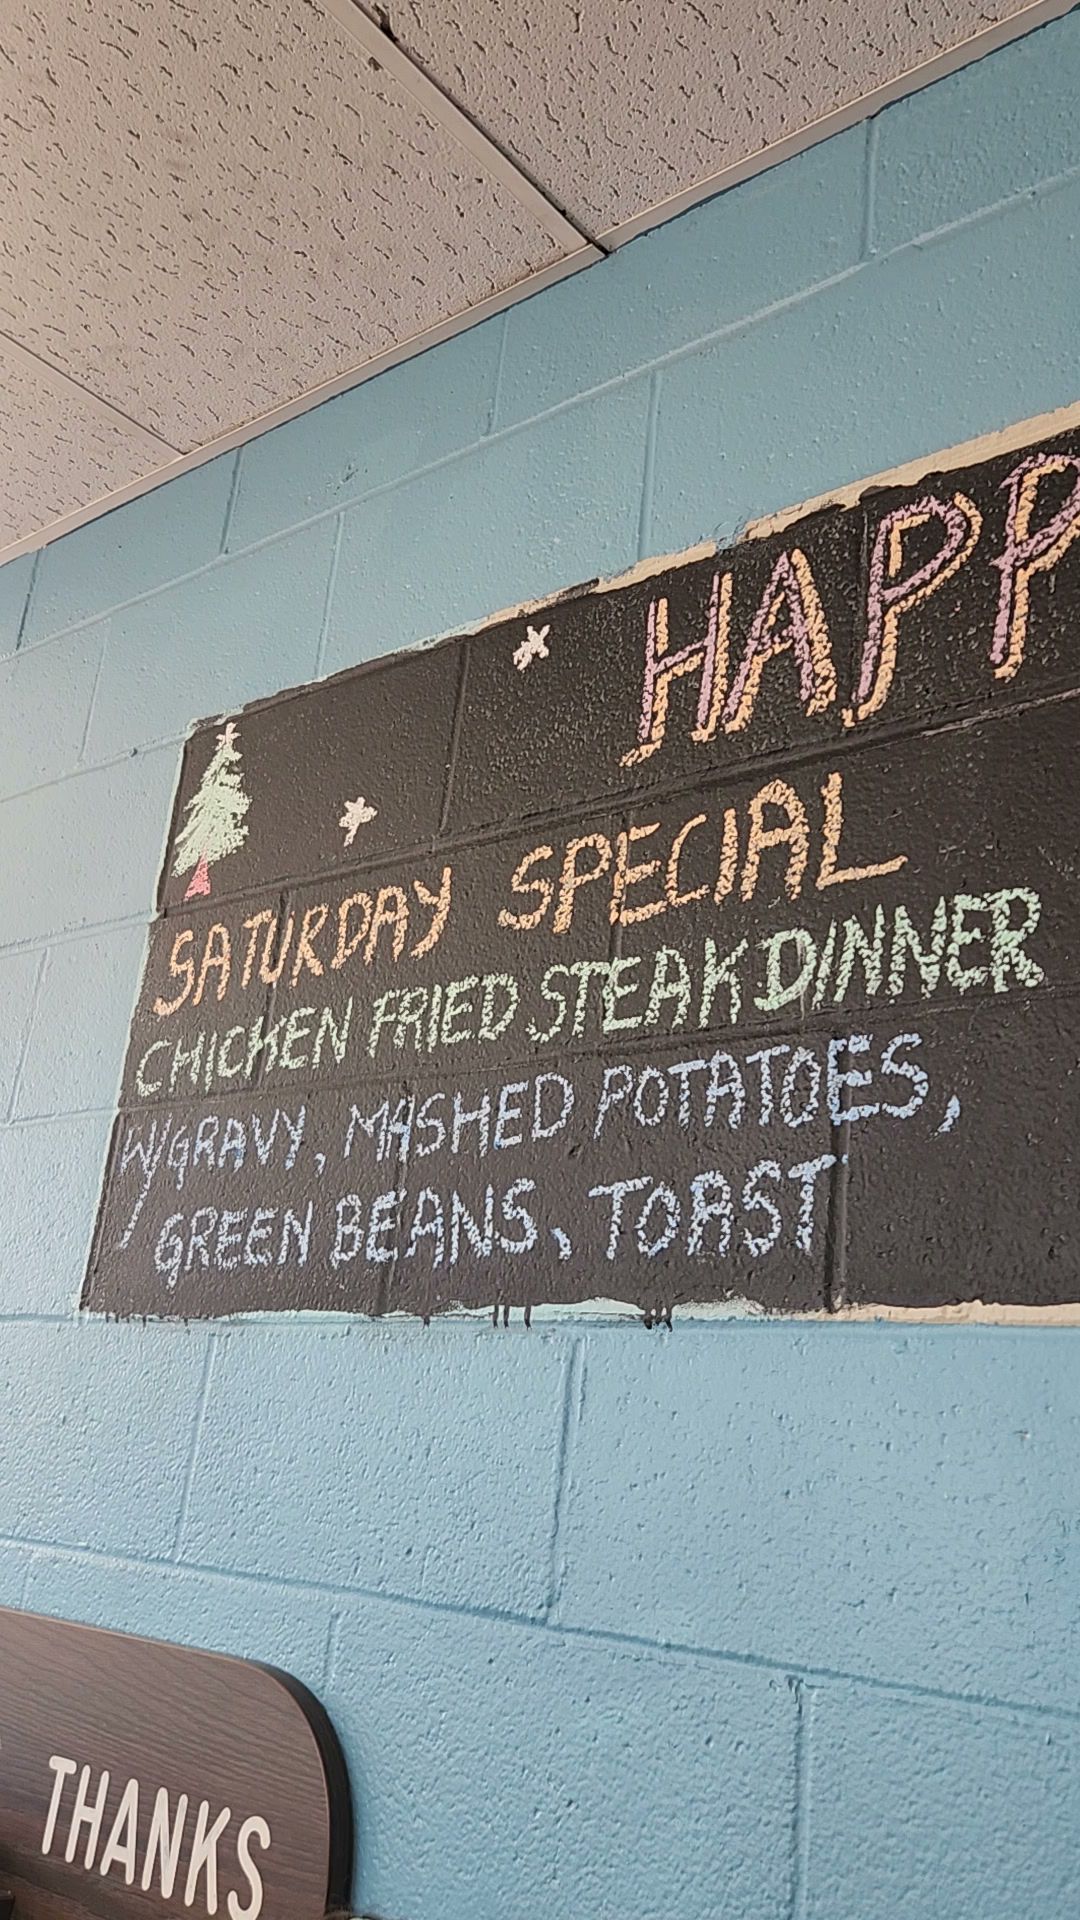 HAPP
SATURDAY SPECIAL
CHICKEN FRIED STEAK DINNER
W/GRAVY, MASHED POTATOES,
GREEN BEANS, TOAST
THANKS